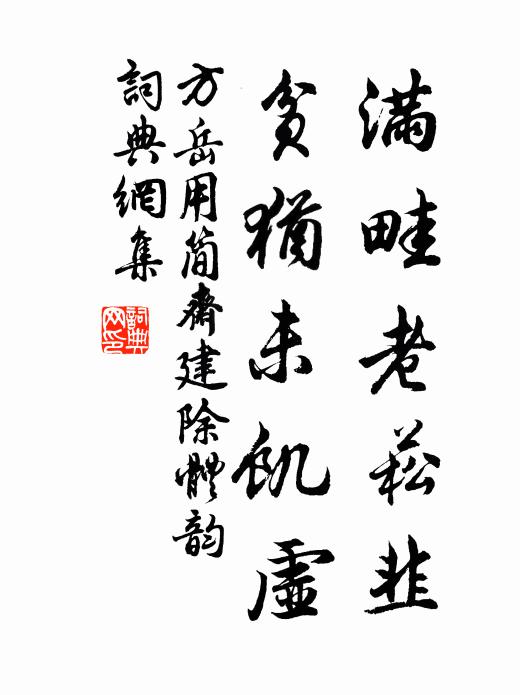 满畦老菘韭
贫犹未飢虚
方岳用简斋建除體韵
詞典網集
詞典网印